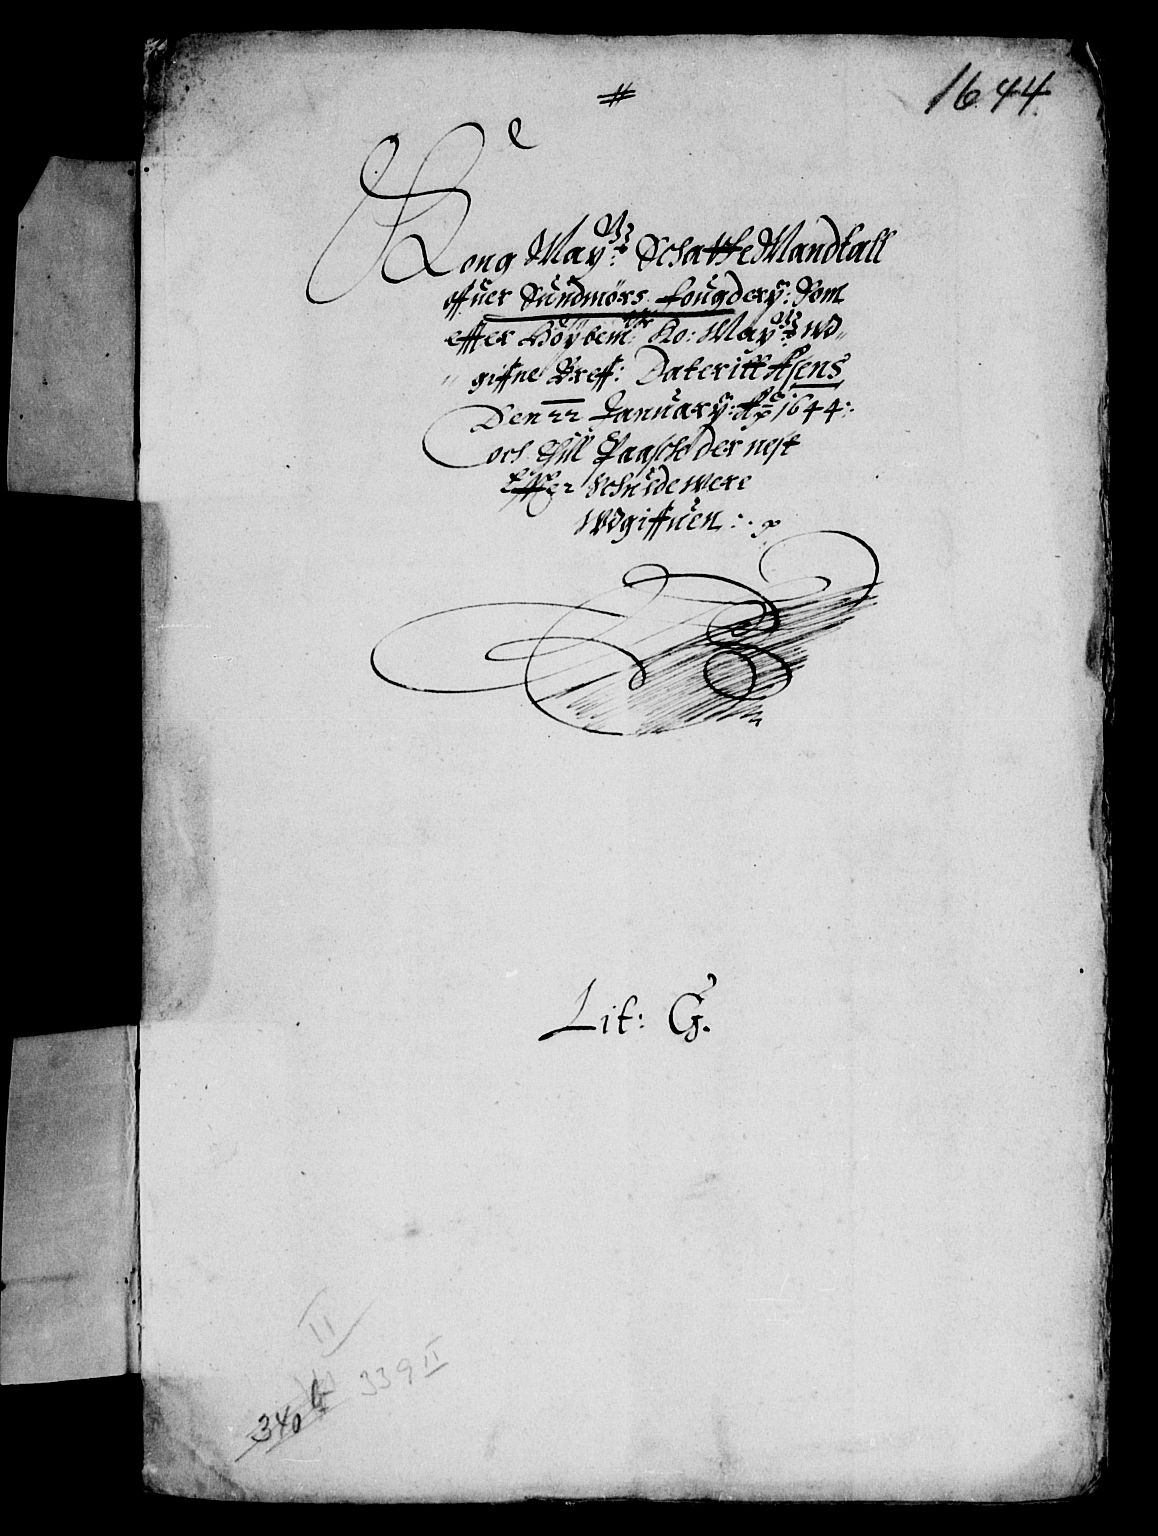 1644
Kong Mayttz Schatte Mandtall
offuer Sundmørs fougdery: Som
effter Høybem: Ko: Mayttz wd-
giffne Breff: Dateritt
Den 22 January: Ao 1644:
och thill Paasche der nest
Effter Schulde were
wdgiffuen
Lit: G.
II
339 II
340 b